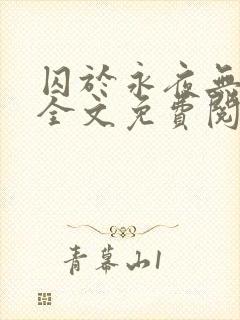 囚於永夜無
全文免費閱
青幕山1